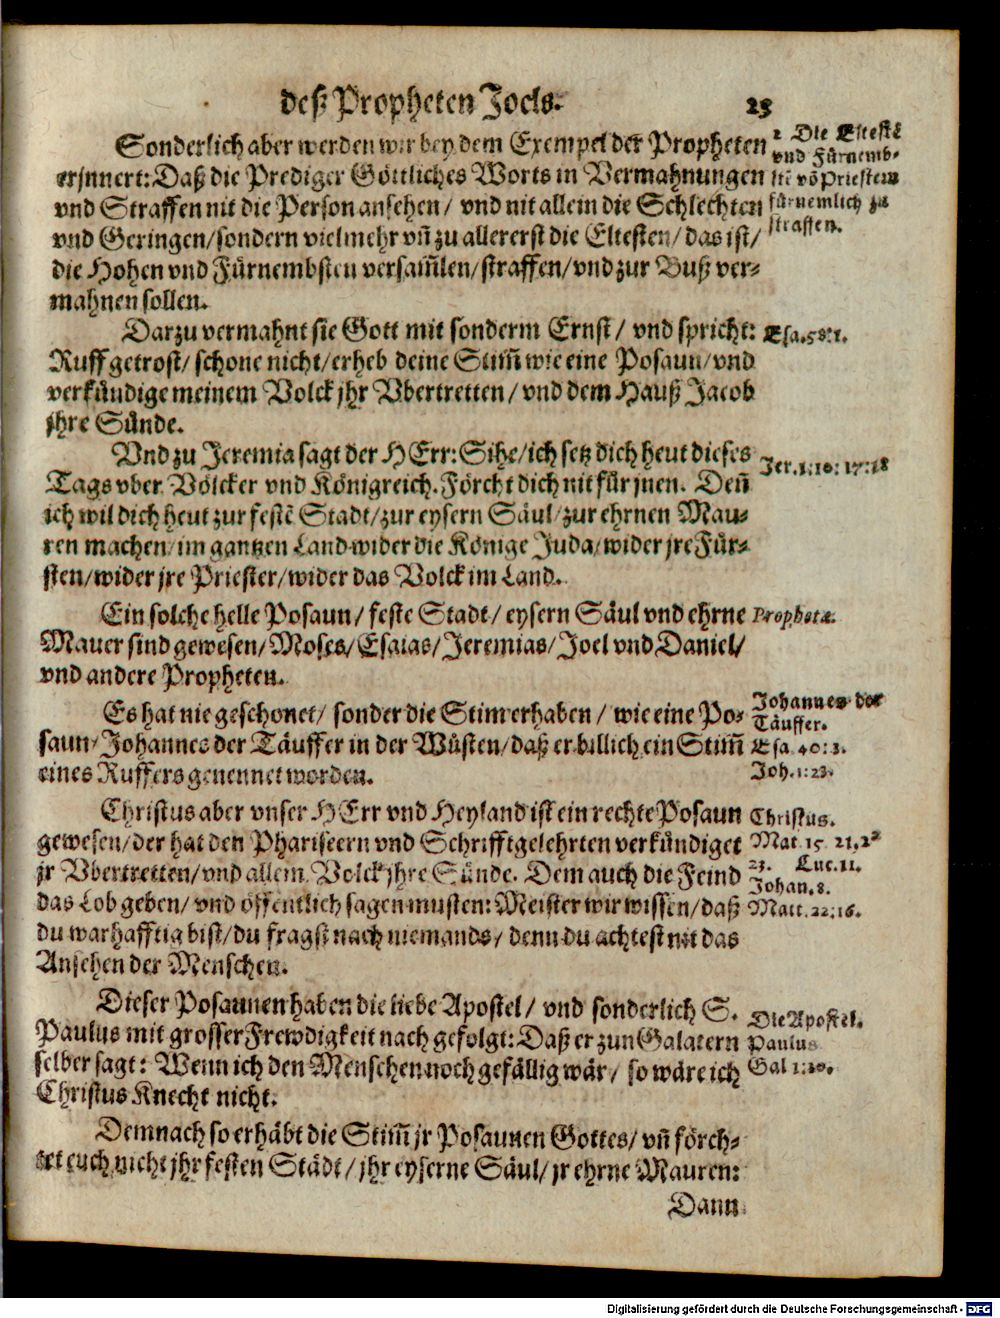 deß Propheten Joels. 25
Sonderlich aber werden wir bey dem Exempel der Propheten
erinnert: Daß die Prediger Göttliches Worts in Vermahnungen
vnd Straffen nit die Person ansehen / vnd nit allein die Schlechten
vnd Geringen / sondern vielmehr vñ zu allererst die Eltesten / das ist /
die Hohen vnd Fürnembsten versam̃len / straffen / vnd zur Buß ver-
mahnen sollen.
2 Die Elteste
vnd Fürnemb-
stẽ võ Priestern
fürnemlich zu
straffen.
Darzu vermahnt sie Gott mit sonderm Ernst / vnd spricht:
Ruff getrost / schone nicht / erheb deine Stim̃ wie eine Posaun / vnd
verkündige meinem Volck jhr Vbertretten / vnd dem Hauß Jacob
jhre Sünde.
Esa. 58:1.
Vnd zu Jeremia sagt der HErr: Sihe / ich setz dich heut dieses
Tags vber Völcker vnd Königreich. Förcht dich nit für jnen. Deñ
ich wil dich heut zur festẽ Stadt / zur eysern Säul / zur ehrnen Mau-
ren machen / im gantzen Land wider die Könige Juda / wider jre Für-
sten / wider jre Priester / wider das Volck im Land.
Jer. 1:10: 17:18
Ein solche helle Posaun / feste Stadt / eysern Säul vnd ehrne
Mauer sind gewesen / Moses / Esaias / Jeremias / Joel vnd Daniel /
vnd andere Propheten.
Prophetæ.
Es hat nie geschonet / sonder die Stim erhaben / wie eine Po-
saun / Johannes der Täuffer in der Wüsten / daß er billich ein Stim̃
eines Ruffers genennet worden.
Johannes der
Täuffer.
Esa. 40:3.
Joh. 1:23.
Christus aber vnser HErr vnd Heyland ist ein rechte Posaun
gewesen / der hat den Phariseern vnd Schrifftgelehrten verkündiget
jr Vbertretten / vnd allem Volck jhre Sünde. Dem auch die Feind
das Lob geben / vnd öffentlich sagen musten: Meister wir wissen / daß
du warhafftig bist / du fragst nach niemands / denn du achtest nit das
Ansehen der Menschen.
Christus.
Mat. 15. 21. 22
23. Luc. 11.
Johan. 8.
Matt. 22:16.
Dieser Posaunen haben die liebe Apostel / vnd sonderlich S.
Paulus mit grosser Frewdigkeit nach gefolgt: Daß er zun Galatern
selber sagt: Wenn ich den Menschen noch gefällig wär / so wäre ich
Christus Knecht nicht.
Die Apostel.
Paulus
Gal. 1:10.
Demnach so erhäbt die Stim̃ jr Posaunen Gottes / vñ förch-
tet euch nicht jhr festen Städt / jhr eyserne Säul / jr ehrne Mauren:
Dann
Digitalisierung gefördert durch die Deutsche Forschungsgemeinschaft - DFG